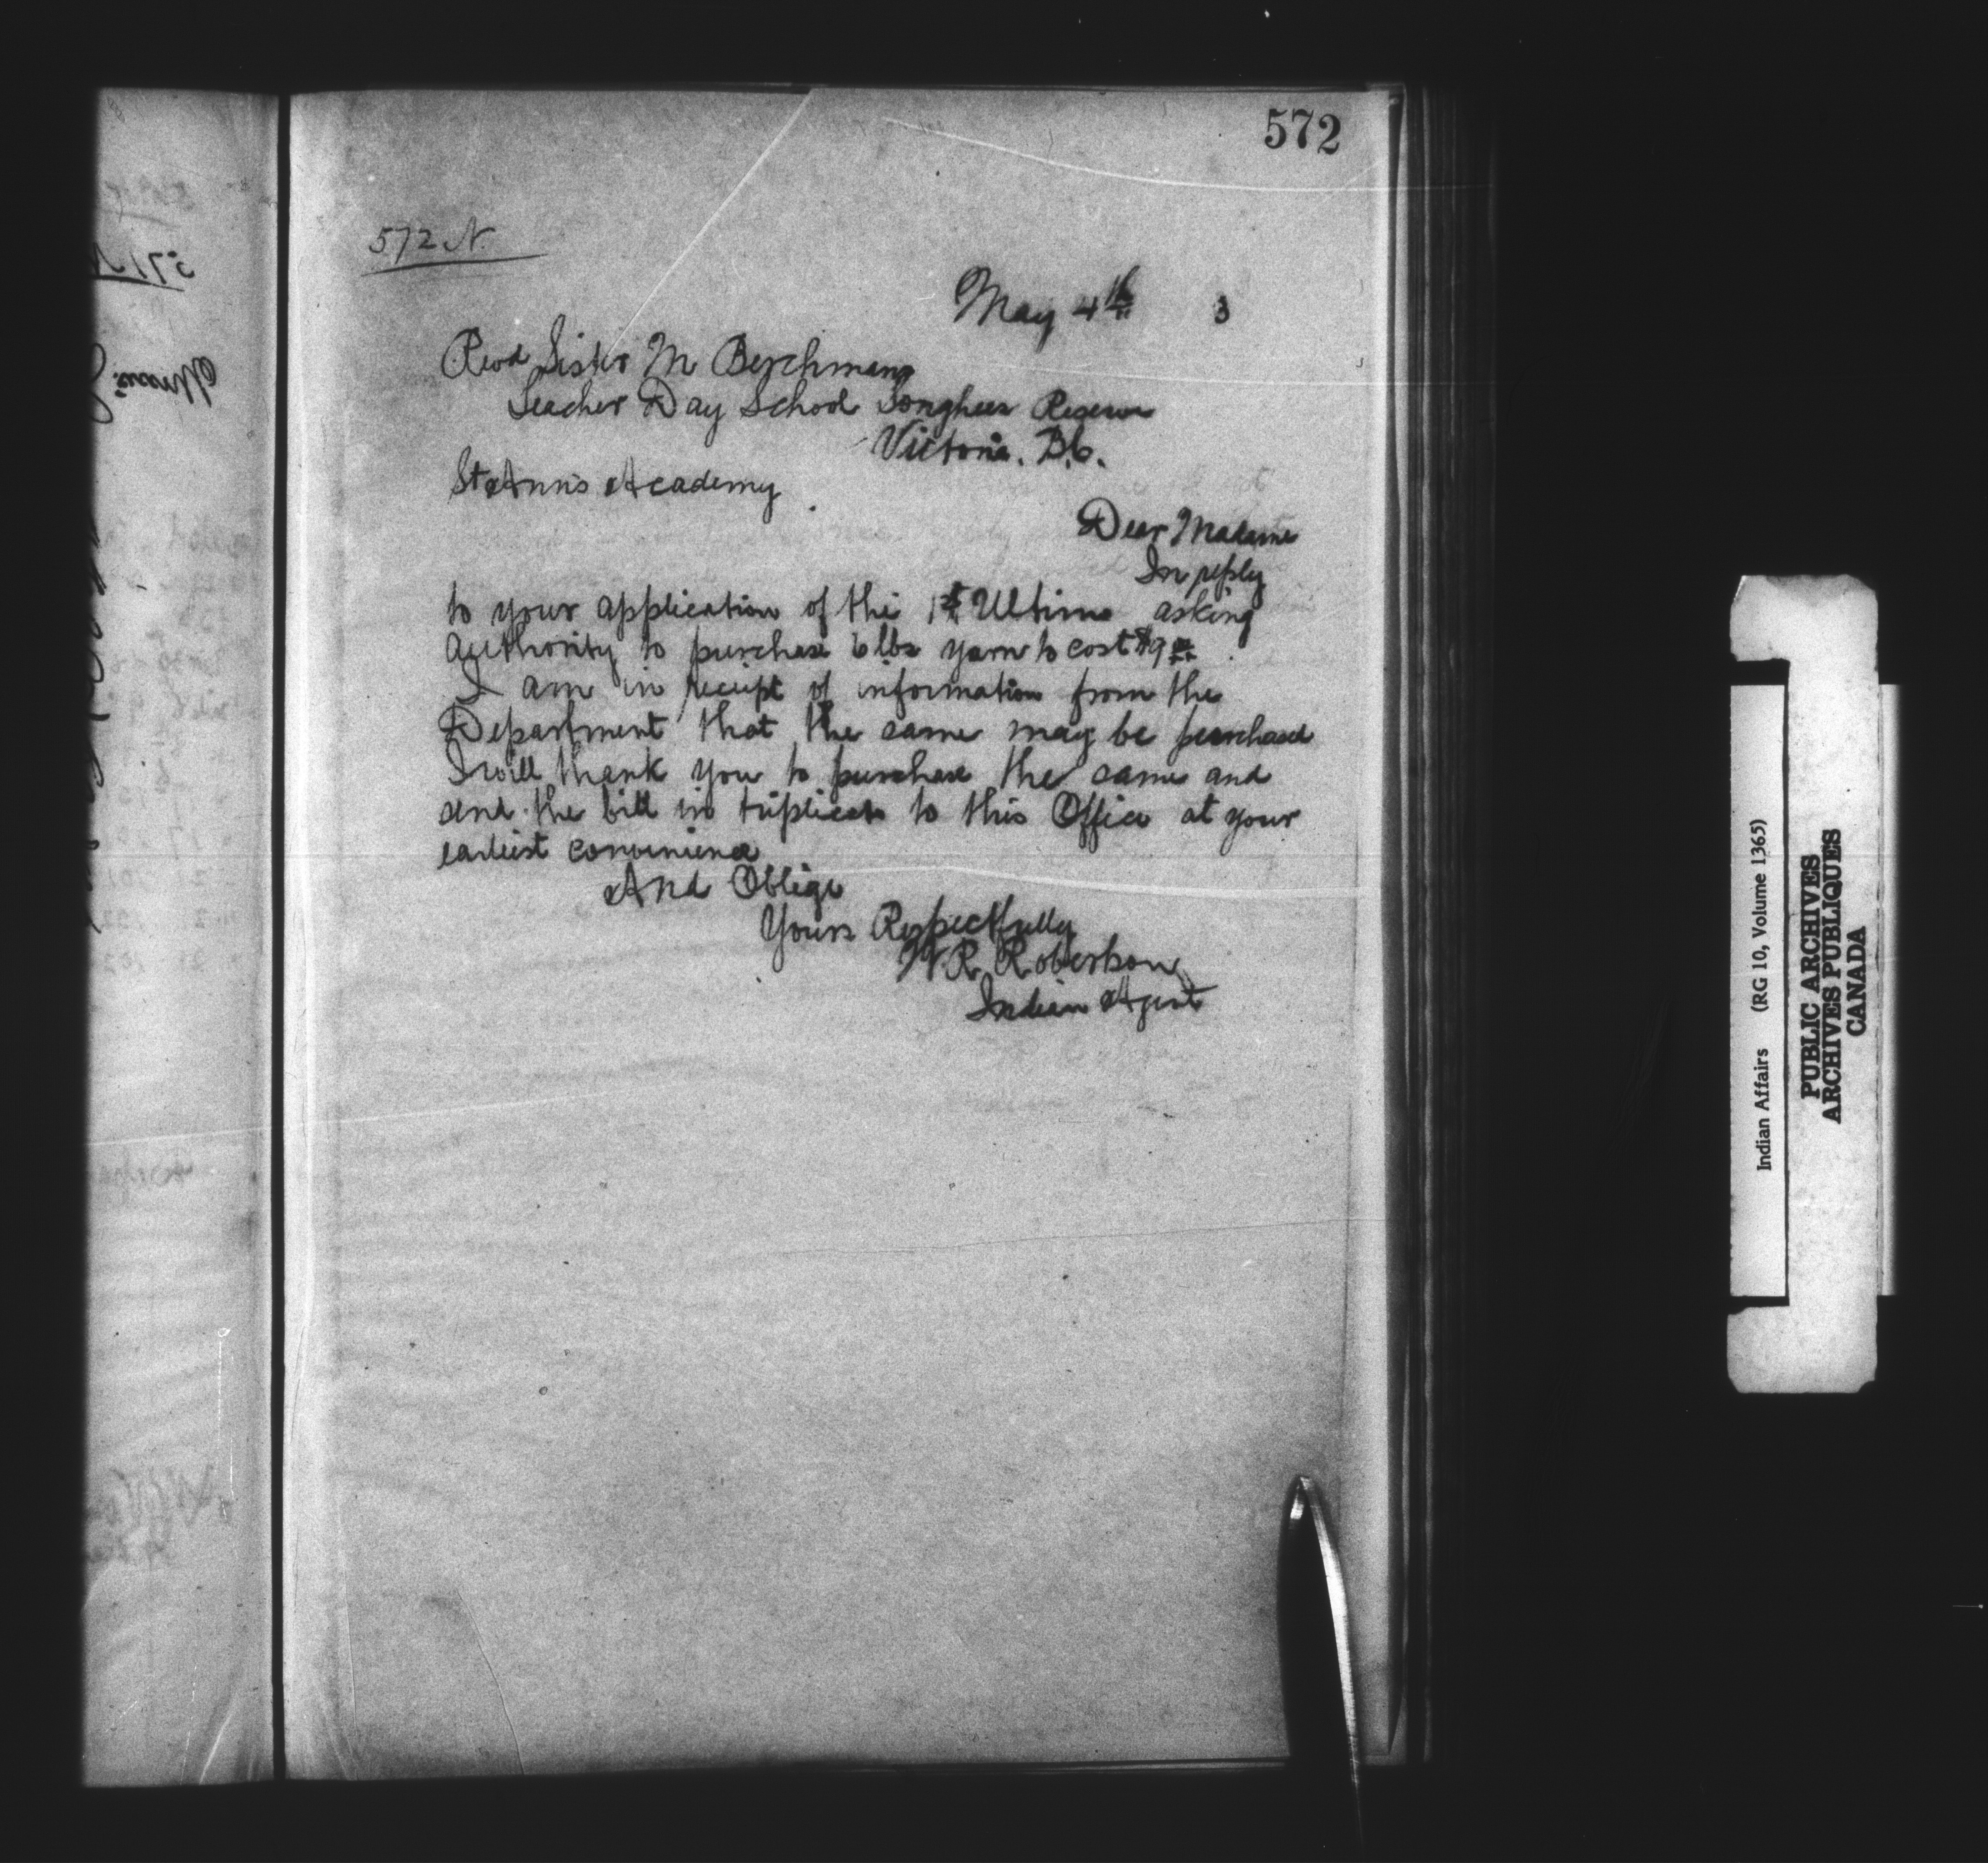 572
572 N
May 4th 3
Revd Sister M Berchmans
Teacher Day School Songhees Reserve
Victoria. B.C.
St Ann's Academy
Dear Madame
In reply
to your application of the 1st Ultimo asking
authority to purchase 6 lbs yarn to cost $9.00
I am in receipt of information from the
Department that the same may be purchased
I will thank you to purchase the same and
send the bill in triplicate to this Office at your
earliest convenience
And Oblige
Yours Respectfully
W. R. Robertson
Indian Agent
Indian Affairs (RG 10, Volume 1365)
PUBLIC ARCHIVES
ARCHIVES PUBLIQUES
CANADA